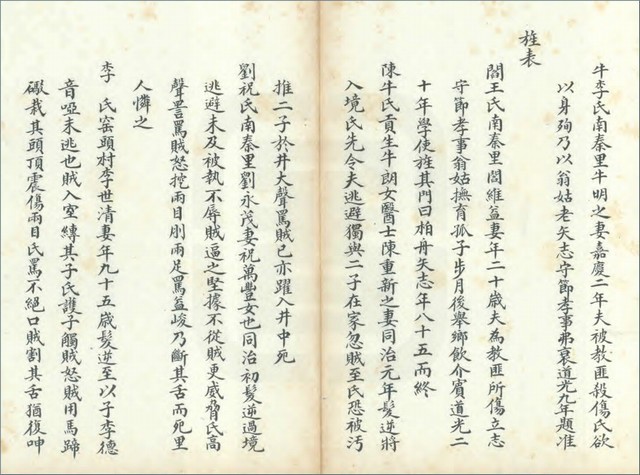 牛李氏南秦里牛明之妻嘉慶二年夫被教匪殺傷氏欲
以身殉乃以翁姑老矢志守節孝事弗衰道光九年題准
旌表
閻王氏南秦里閻維益妻年二十歲夫為教匪所傷立志
守節孝事翁姑撫育孤子步月後舉鄉飲介賓道光二
十年學使旌其門曰柏舟矢志年八十五而終
陳牛氏貢生牛朗女醫士陳重新之妻同治元年髮逆將
入境氏先令夫逃避獨與二子在家忽賊至氏恐被汚
推二子於井大聲罵賊已亦躍入井中死
劉祝氏南秦里劉永茂妻祝萬豐女也同治初髮逆過境
逃避未及被執不辱賊逼之堅據不從賊更威脅氏高
聲詈罵賊怒挖兩目刖兩足罵益峻乃斷其舌而死里
人憐之
李氏窑頭村李世清妻年九十五歲髮逆至以子李德
音啞未逃也賊入室縛其子氏護子觸賊怒賊用馬蹄
礮栽其頭頂震傷兩目氏罵不絕口賊割其舌猶復呻